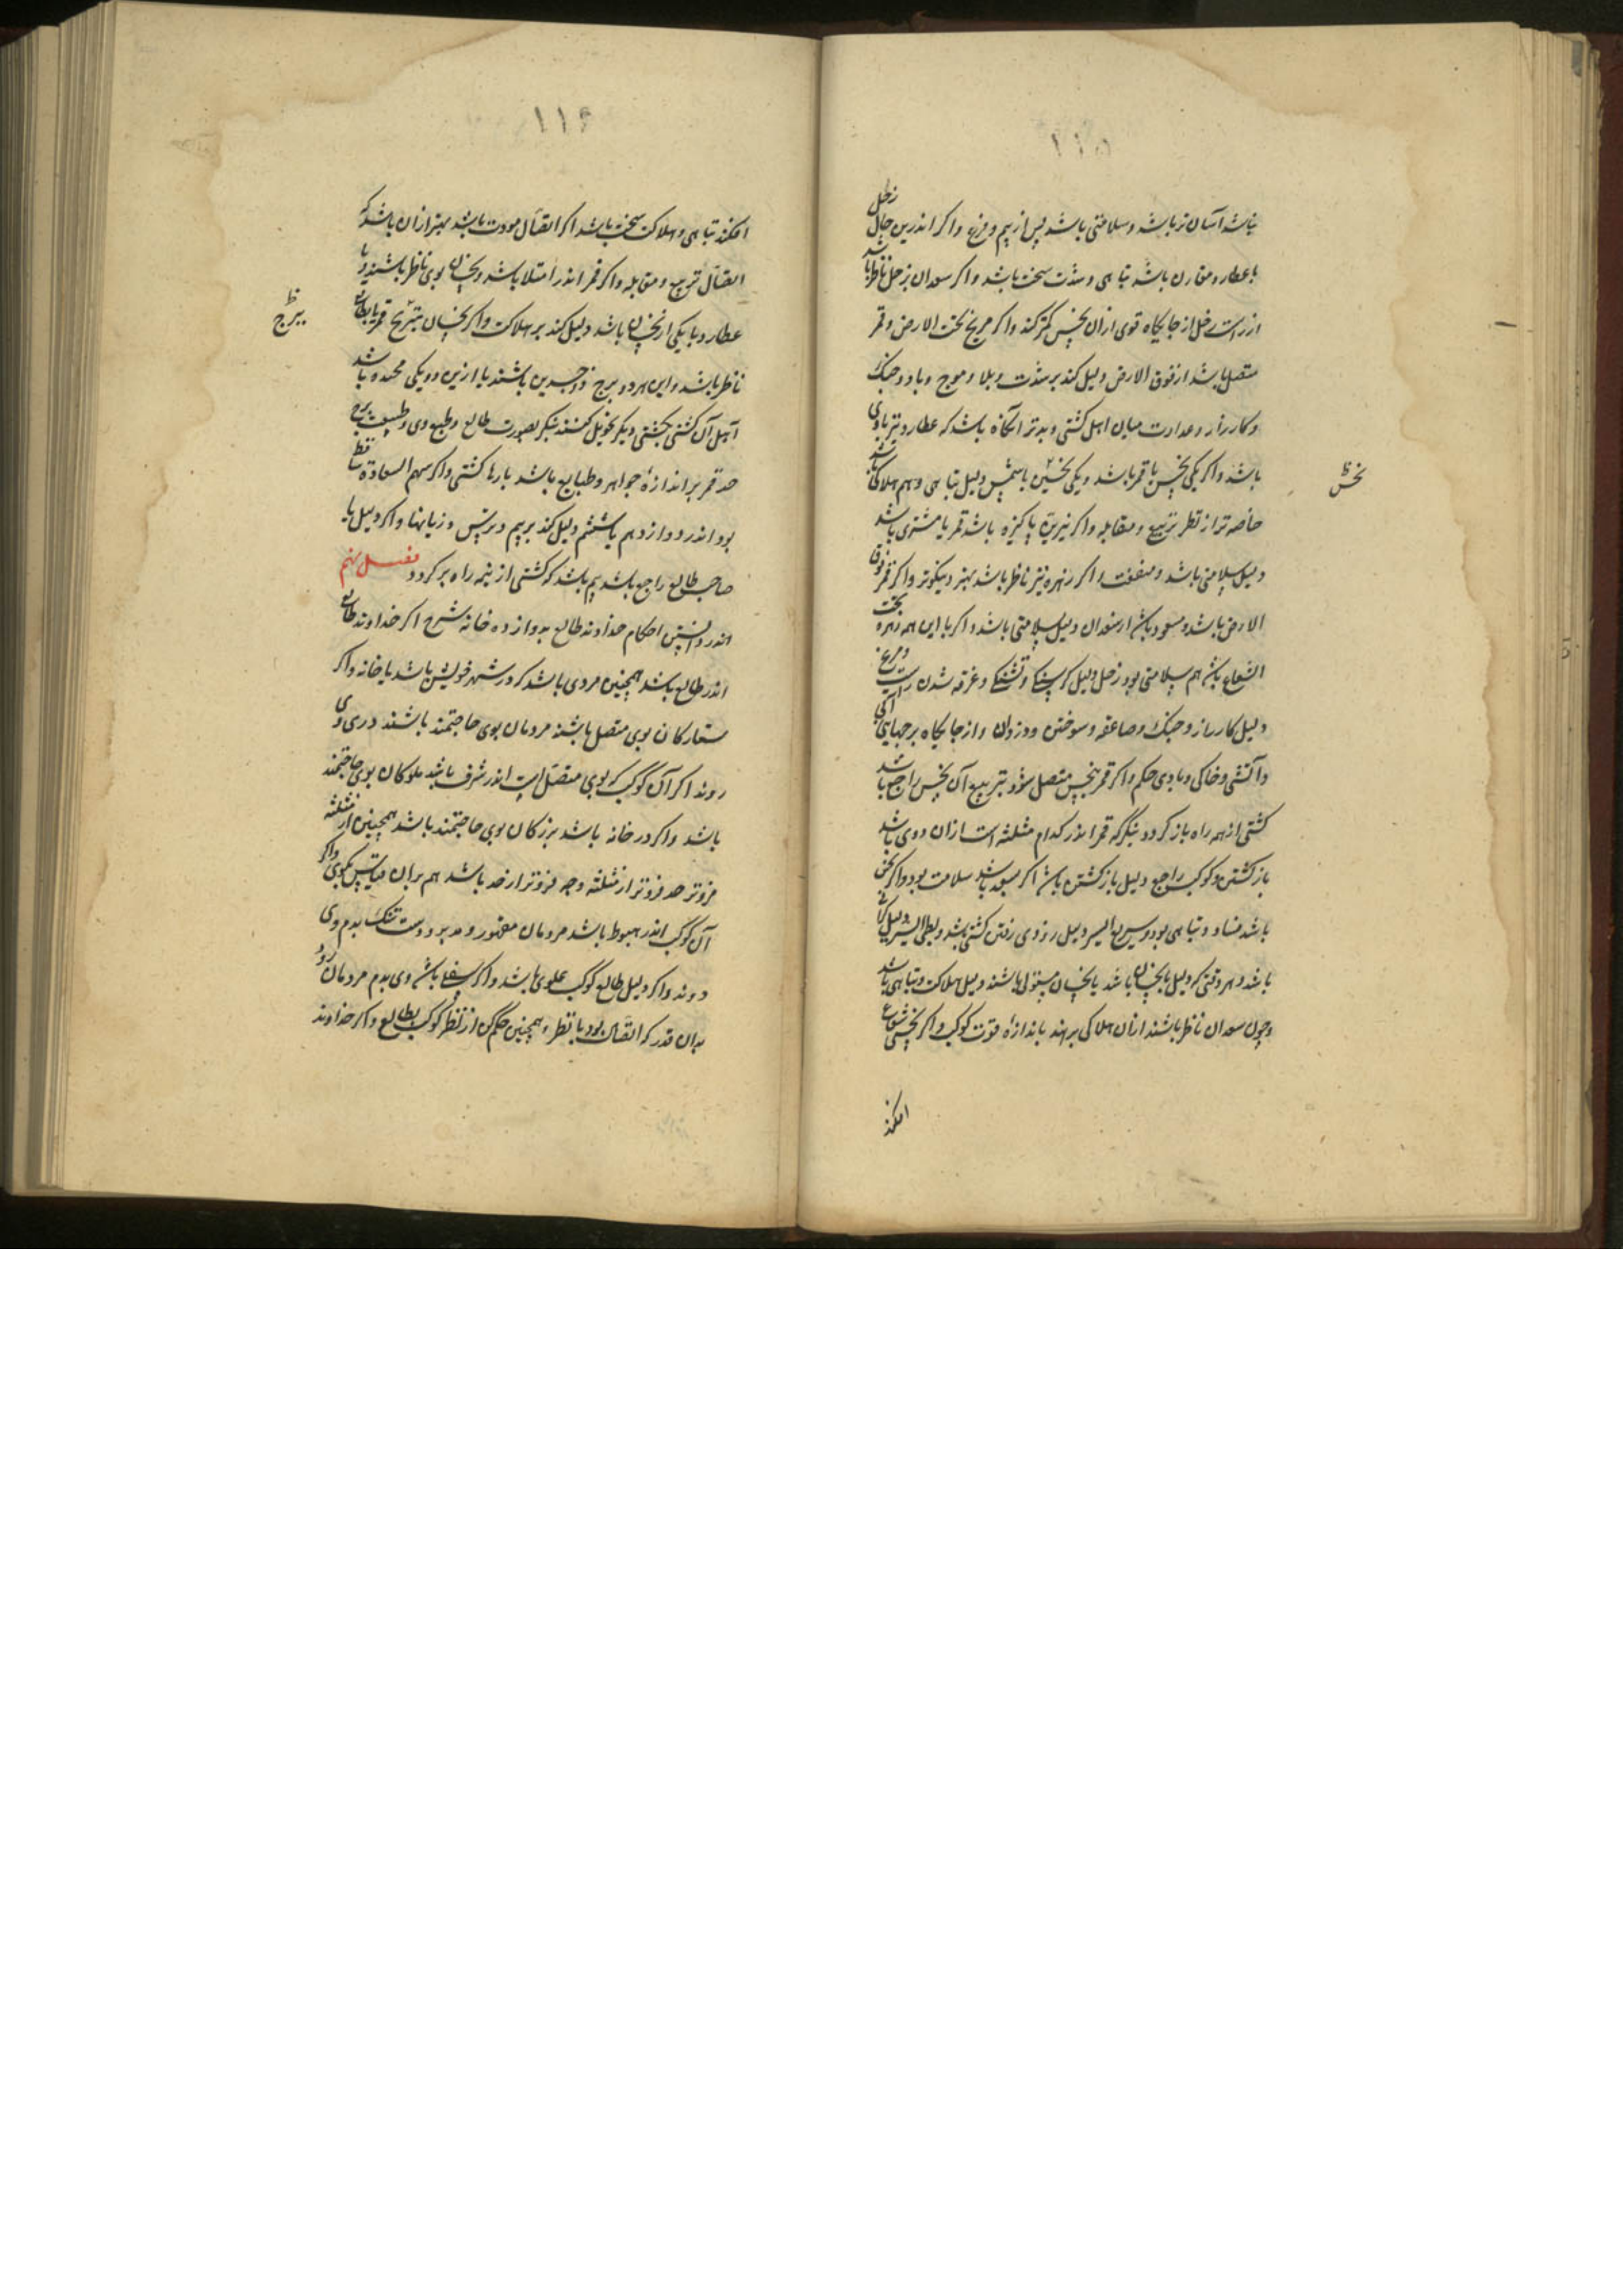 ۱۱۵
نباشد آسان تر باشد و سلامتی باشد پس از بیم و فزع و اگر اندرین حال زحل
با عطارد مقارن باشد تباهی و شدت سخت باشد و اگر سعدان بزحل ناظر باشد
از راست زحل از جایگاه قوی از آن نحس کمتر کند و اگر مریخ تحت الارض و قمر
متصل باشد از فوق الارض دلیل کند بر شدت و بلا و موج و باد و جنگ
و کارزار و عداوت میان اهل کشتی و بدتر آنگاه باشد که عطارد نیز با وی
باشد و اگر یکی نحس با قمر باشد و یکی نحسین با شمس دلیل تباهی و هم هلاکی باشد
خاصه تر از نظر تربیع و مقابله و اگر نیرین پاکیزه باشد قمر با مشتری باشد
دلیل سلامتی باشد و منفعت و اگر زهره نیز ناظر باشد بهتر و نیکوتر و اگر قمر فوق
الارض باشد و مسعود باشد از سعدان دلیل سلامتی باشد و اگر با این همه زهره تحت
الشعاع باشد هم سلامتی بود زحل دلیل گرسنگی و تشنگی و غرقه شدن است و مریخ
دلیل کارزار و جنگ و صاعقه و سوختن و دزدان و از جایگاه برجهای آبی
و آتشی و خاکی و بادی حکم و اگر قمر بنحس متصل شود بتربیع آن نحس راجع باشد
کشتی از همه راه باز گردد بنگر که قمر اندر کدام مثلثه است از آن روی باشد
باز گشتن و کوکب راجع دلیل باز گشتن باشد اگر سعد باشد سلامت بود و اگر نحس
باشد فساد و تباهی بود و سریع السیر دلیل زودی رفتن کشتی باشد و بطی السیر دلیل گرانی
باشد و هر وقتی که دلیل با نحسان باشد یا نحسان مستولی باشند دلیل هلاکت و تباهی باشد
و چون سعدان ناظر باشند از آن هلاکی برهند باندازه قوت کوکب و اگر نحسی شعاع
افکند
نحس
۱۱۶
افکند تباهی و هلاکت سخت باشد اگر اتصال مودت باشد بهتر از آن باشد که
اتصال تربیع و مقابله و اگر قمر اندر امتلا باشد و نحسان بوی ناظر باشند و با
عطارد و با یکی از نحسان باشد دلیل کند بر هلاکت و اگر نحسان
ناظر باشد و این هر دو برج ذو جسدین باشند یا ازین دو یکی مجسده باشد
اهل آن کشتی بکشتی دیگر تحویل کنند بنگر بصورت طالع و طبع وی و طبیعت برج
حد قمر بر اندازه جواهر و طبایع باشد بارها کشتی و اگر سهم السعاده ساقط
بود اندر دوازدهم یا ششم دلیل کند بر بیم و ترس و زیانها و اگر دلیل با
صاحب طالع راجع باشد بیم باشد که کشتی از نیمه راه برگردد فصل نهم
اندر دانستن احکام خداوند طالع بدوازده خانه شرح اگر خداوند طالع
اندر طالع باشد همچنین مردی باشد که در شهر خویش باشد یا خانه و اگر
ستارگان بوی متصل باشند مردمان بوی حاجتمند باشند در وی
روند اگر آن کوکب که بوی متصل است اندر شرف باشد ملوکان بوی حاجتمند
باشد و اگر در خانه باشد بزرگان بوی حاجتمند باشد همچنین از مثلثه
فروتر حد فروتر از مثلثه وجه فروتر از حد باشد هم بر این قیاس بگوی و اگر
آن کوکب اندر هبوط باشد مردمان مقهور و مدبر و دست تنگ بدم وی
روند و اگر دلیل طالع کوکب علوی باشد و اگر سفلی باشد وی بدم مردمان رود
بدان قدر که اتصال بود یا نظر و همچنین حکم کن از نظر کوکب بطالع و اگر خداوند
ببرج